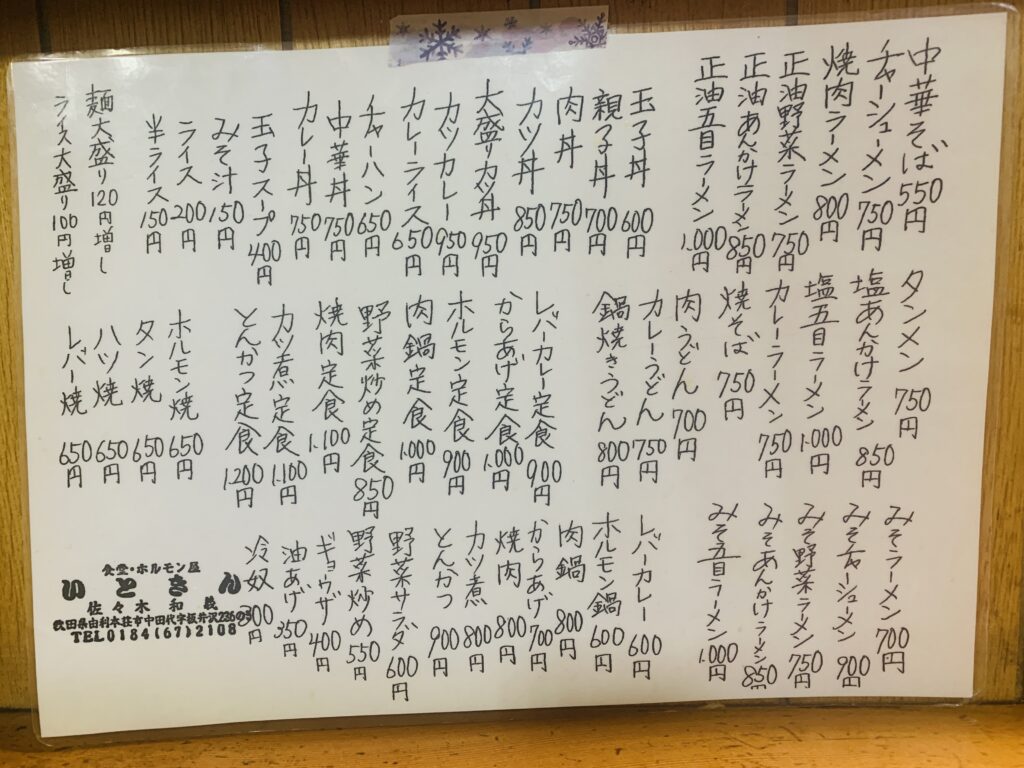 中華そば 550円
チャーシューメン 750円
焼肉ラーメン 800円
正油野菜ラーメン 750円
正油あんかけラーメン 850円
正油五目ラーメン 1.000円
玉子丼 600円
親子丼 700円
肉丼 750円
カツ丼 850円
大盛りカツ丼 950円
カツカレー 950円
カレーライス 650円
チャーハン 650円
中華丼 750円
カレー丼 750円
玉子スープ 400円
みそ汁 150円
ライス 200円
半ライス 150円
麺大盛り120円増し
ライス大盛り100円増し
タンメン 750円
塩あんかけラーメン 850円
塩五目ラーメン 1.000円
カレーラーメン 750円
焼そば 750円
肉うどん 700円
カレーうどん 750円
鍋焼きうどん 800円
レバーカレー定食 900円
からあげ定食 1.000円
ホルモン定食 900円
肉鍋定食 1.000円
野菜炒め定食 850円
焼肉定食 1.100円
カツ煮定食 1.100円
とんかつ定食 1.200円
ホルモン焼 650円
タン焼 650円
ハツ焼 650円
レバー焼 650円
みそラーメン 700円
みそチャーシューメン 900円
みそ野菜ラーメン 750円
みそあんかけラーメン 850円
みそ五目ラーメン 1.000円
レバーカレー 600円
ホルモン鍋 600円
肉鍋 800円
からあげ 700円
焼肉 800円
カツ煮 800円
とんかつ 900円
野菜サラダ 600円
野菜炒め 550円
ギョウザ 400円
油あげ 350円
冷奴 300円
食堂・ホルモン屋
いときん
佐々木 和義
秋田県由利本荘市中田代字板井沢236の5
TEL0184(67)2108